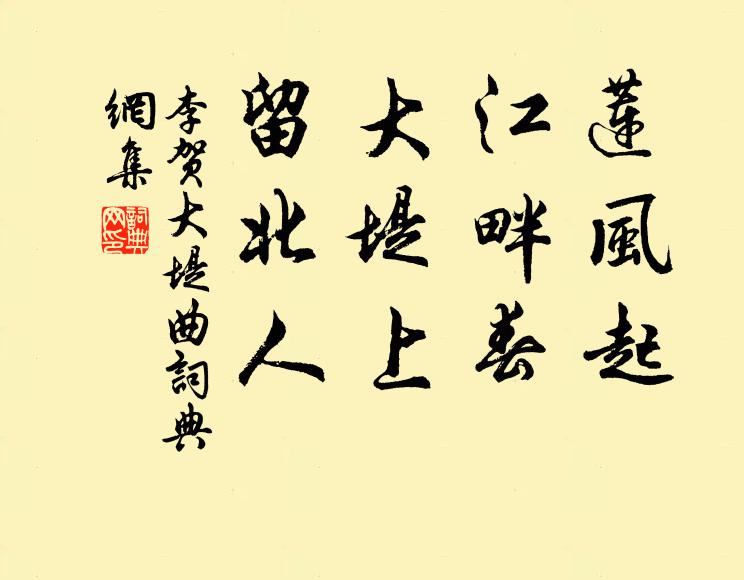 蓮風起
江畔春
大堤上
留北人
李賀大堤曲詞典
網集
詞典
网印